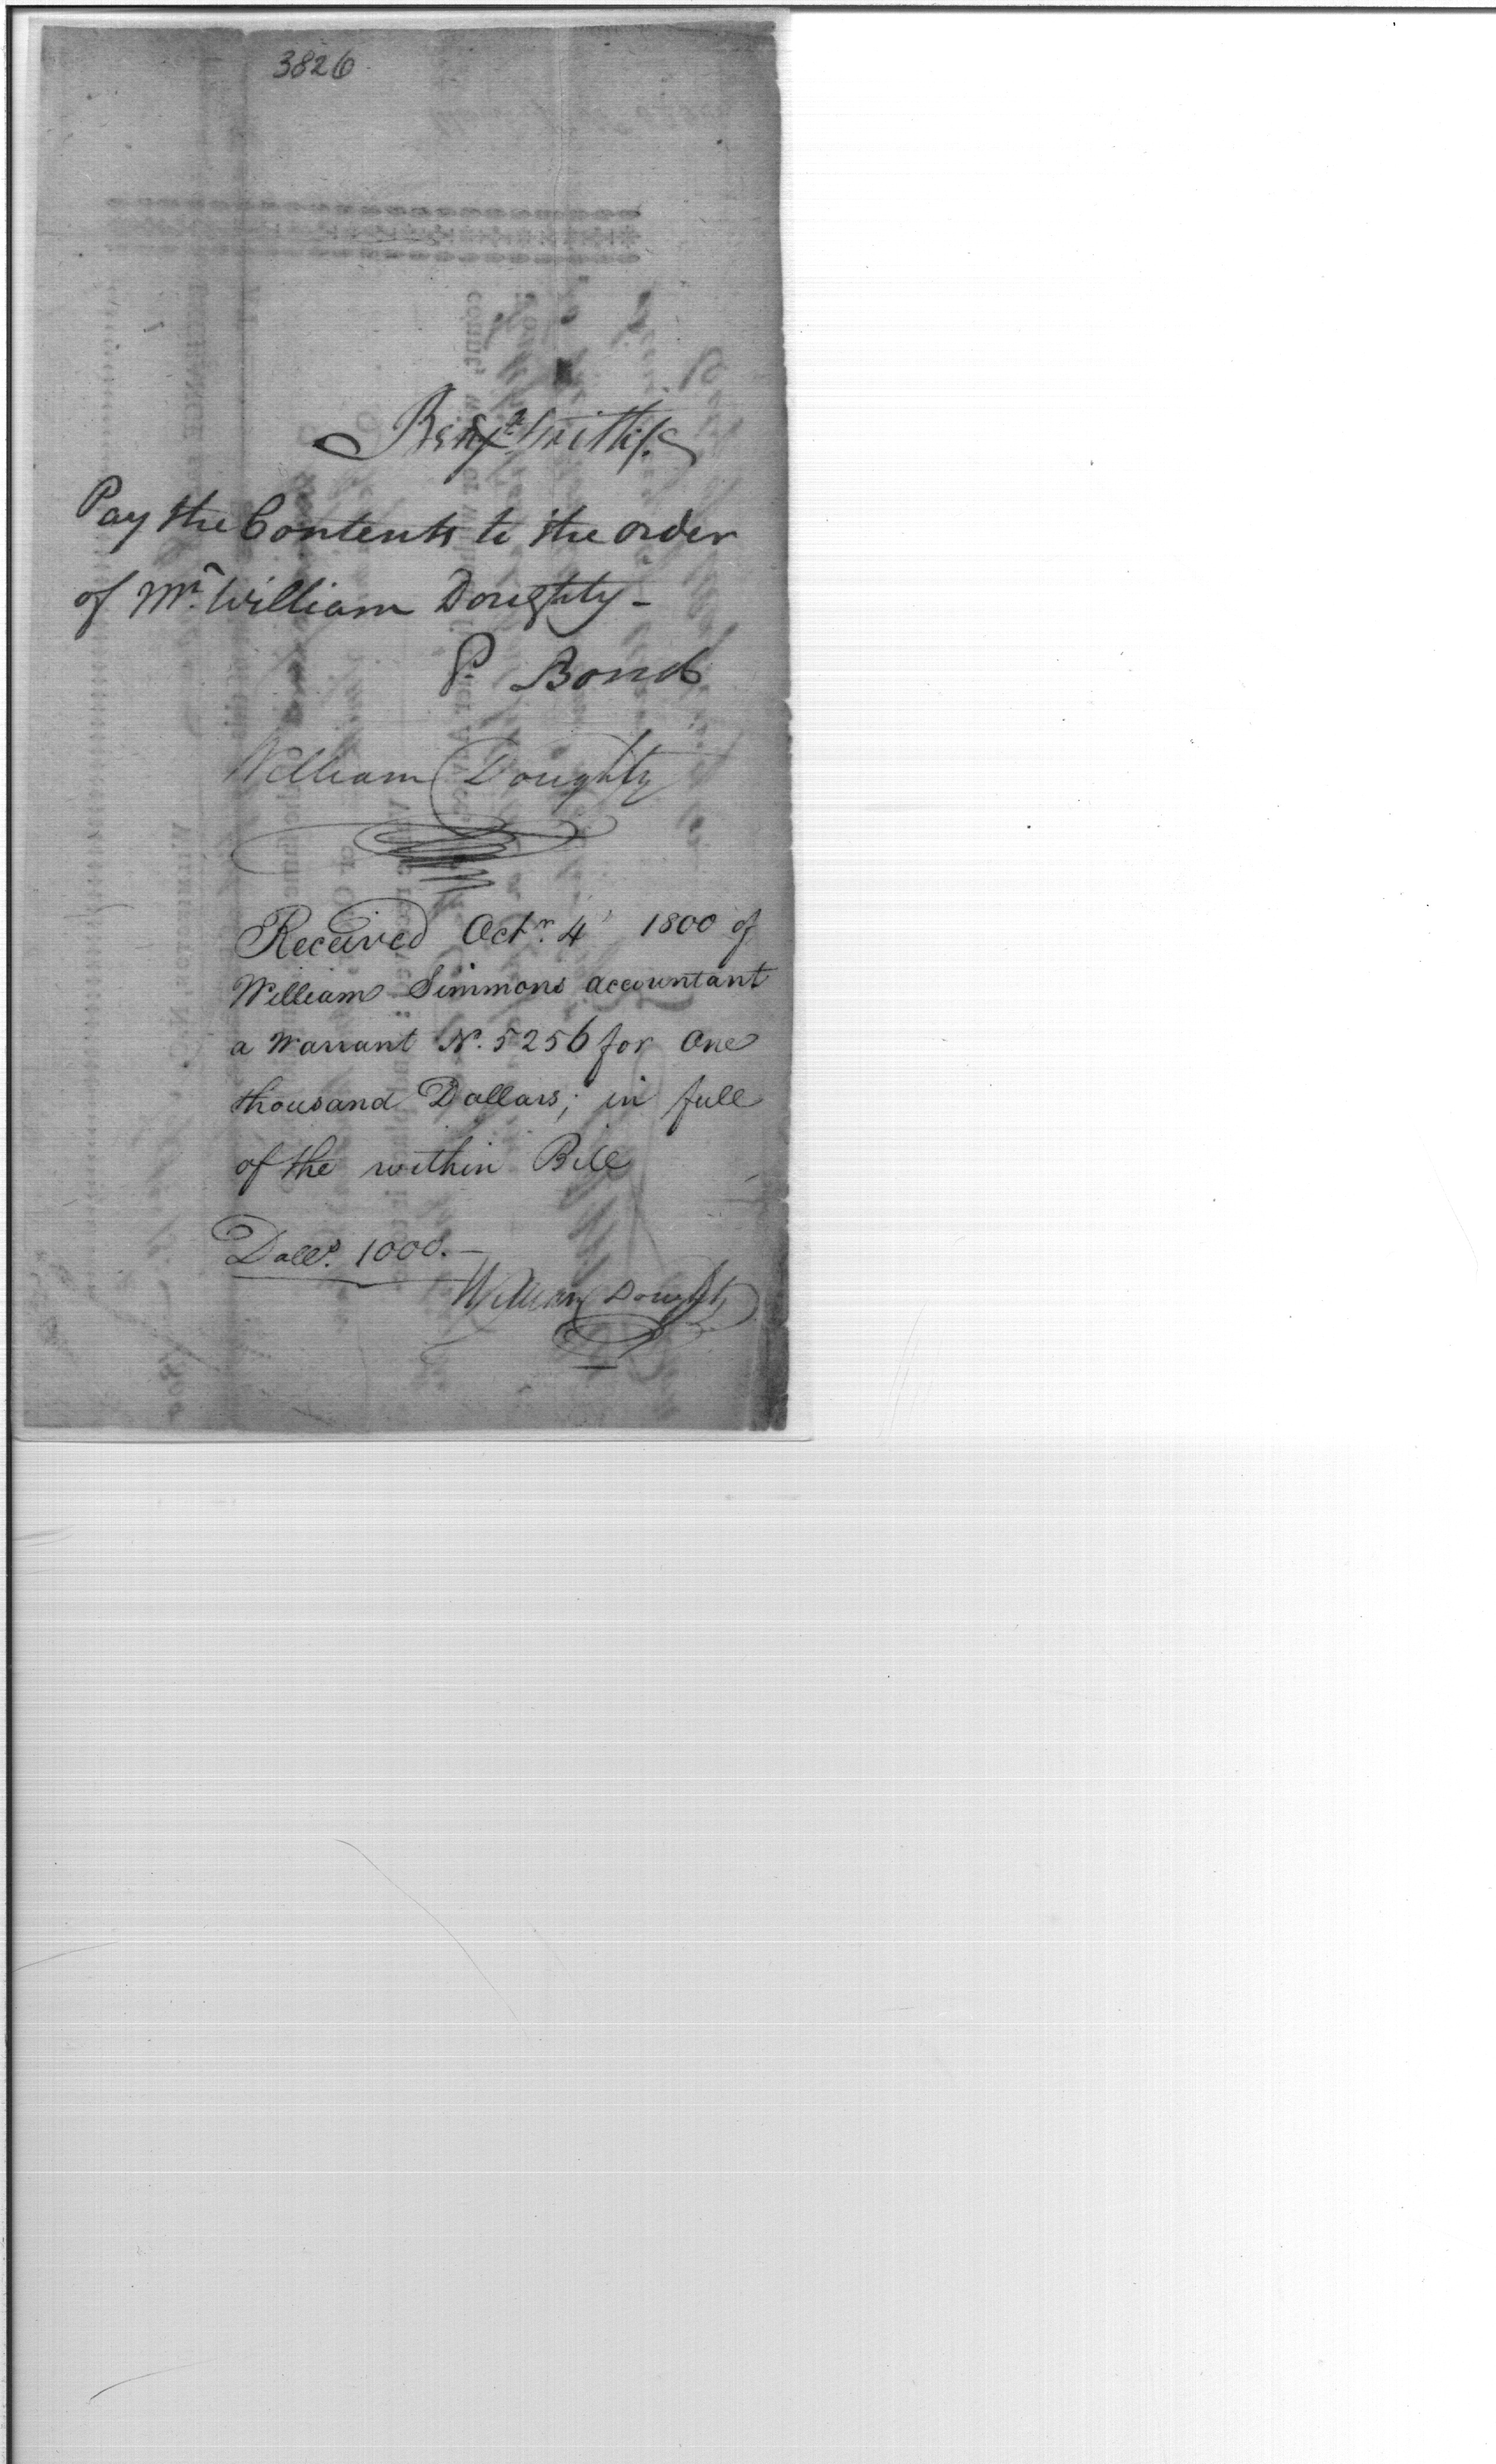 3826
Benjn Smith
Pay the Contents to the order
of Mr. William Doughty -
P. Bond
William Doughty
Received Octr. 4 1800 of
William Simmons accountant
a Warrant No. 5256 for One
thousand Dollars; in full
of the within Bill
Dolls. 1000.—
William Doughty